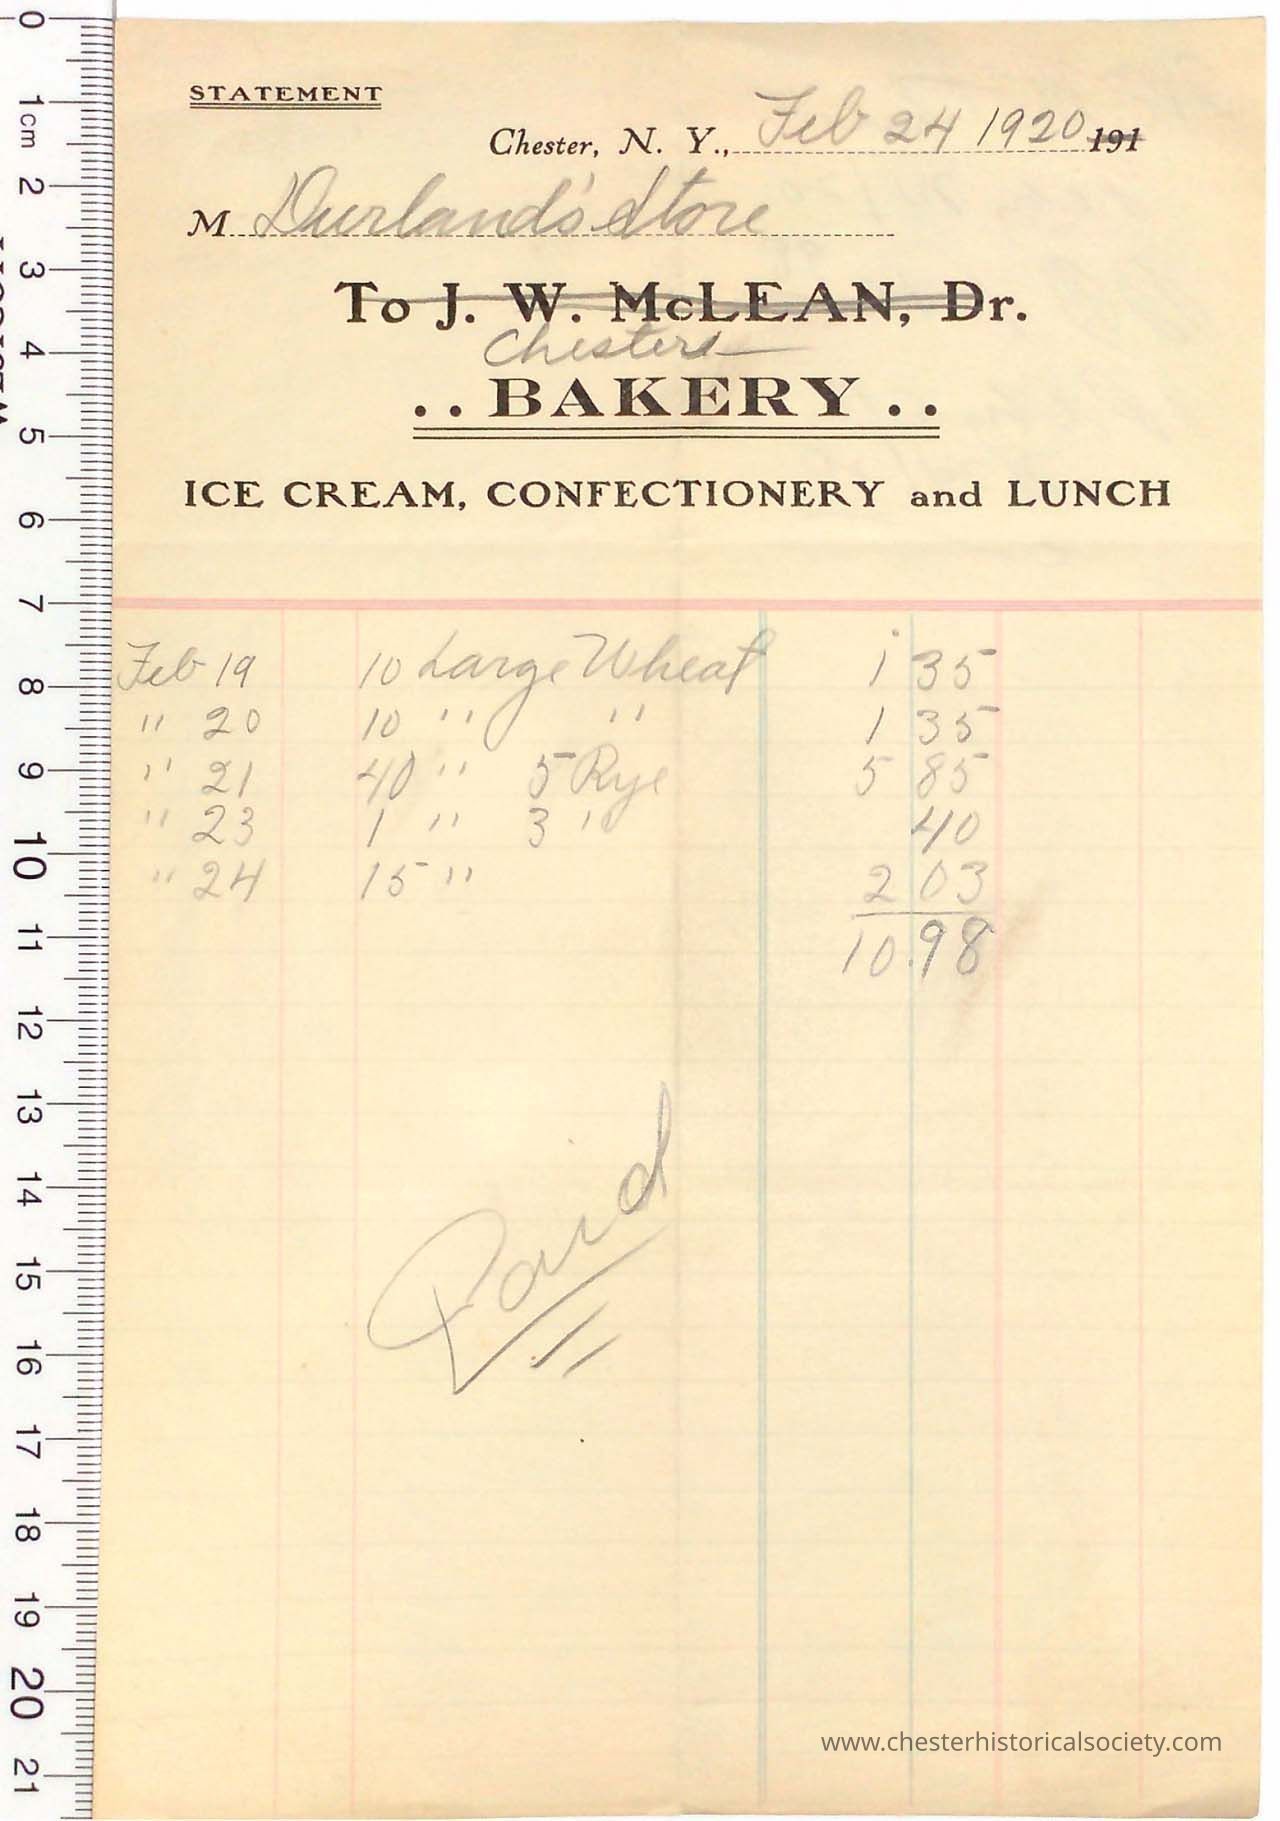 STATEMENT
Chester, N. Y., Feb 24 1920 191
M Durland's Store
To J. W. McLEAN, Dr.
Chester
.. BAKERY ..
ICE CREAM, CONFECTIONERY and LUNCH
Feb 19 10 Large Wheat 1 35
" 20 10 " " 1 35
" 21 40 " 5 Rye 5 85
" 23 1 " 3 " 40
" 24 15 " 2 03
10.98
Paid
www.chesterhistoricalsociety.com
0
1cm
2
3
4
5
6
7
8
9
10
11
12
13
14
15
16
17
18
19
20
21